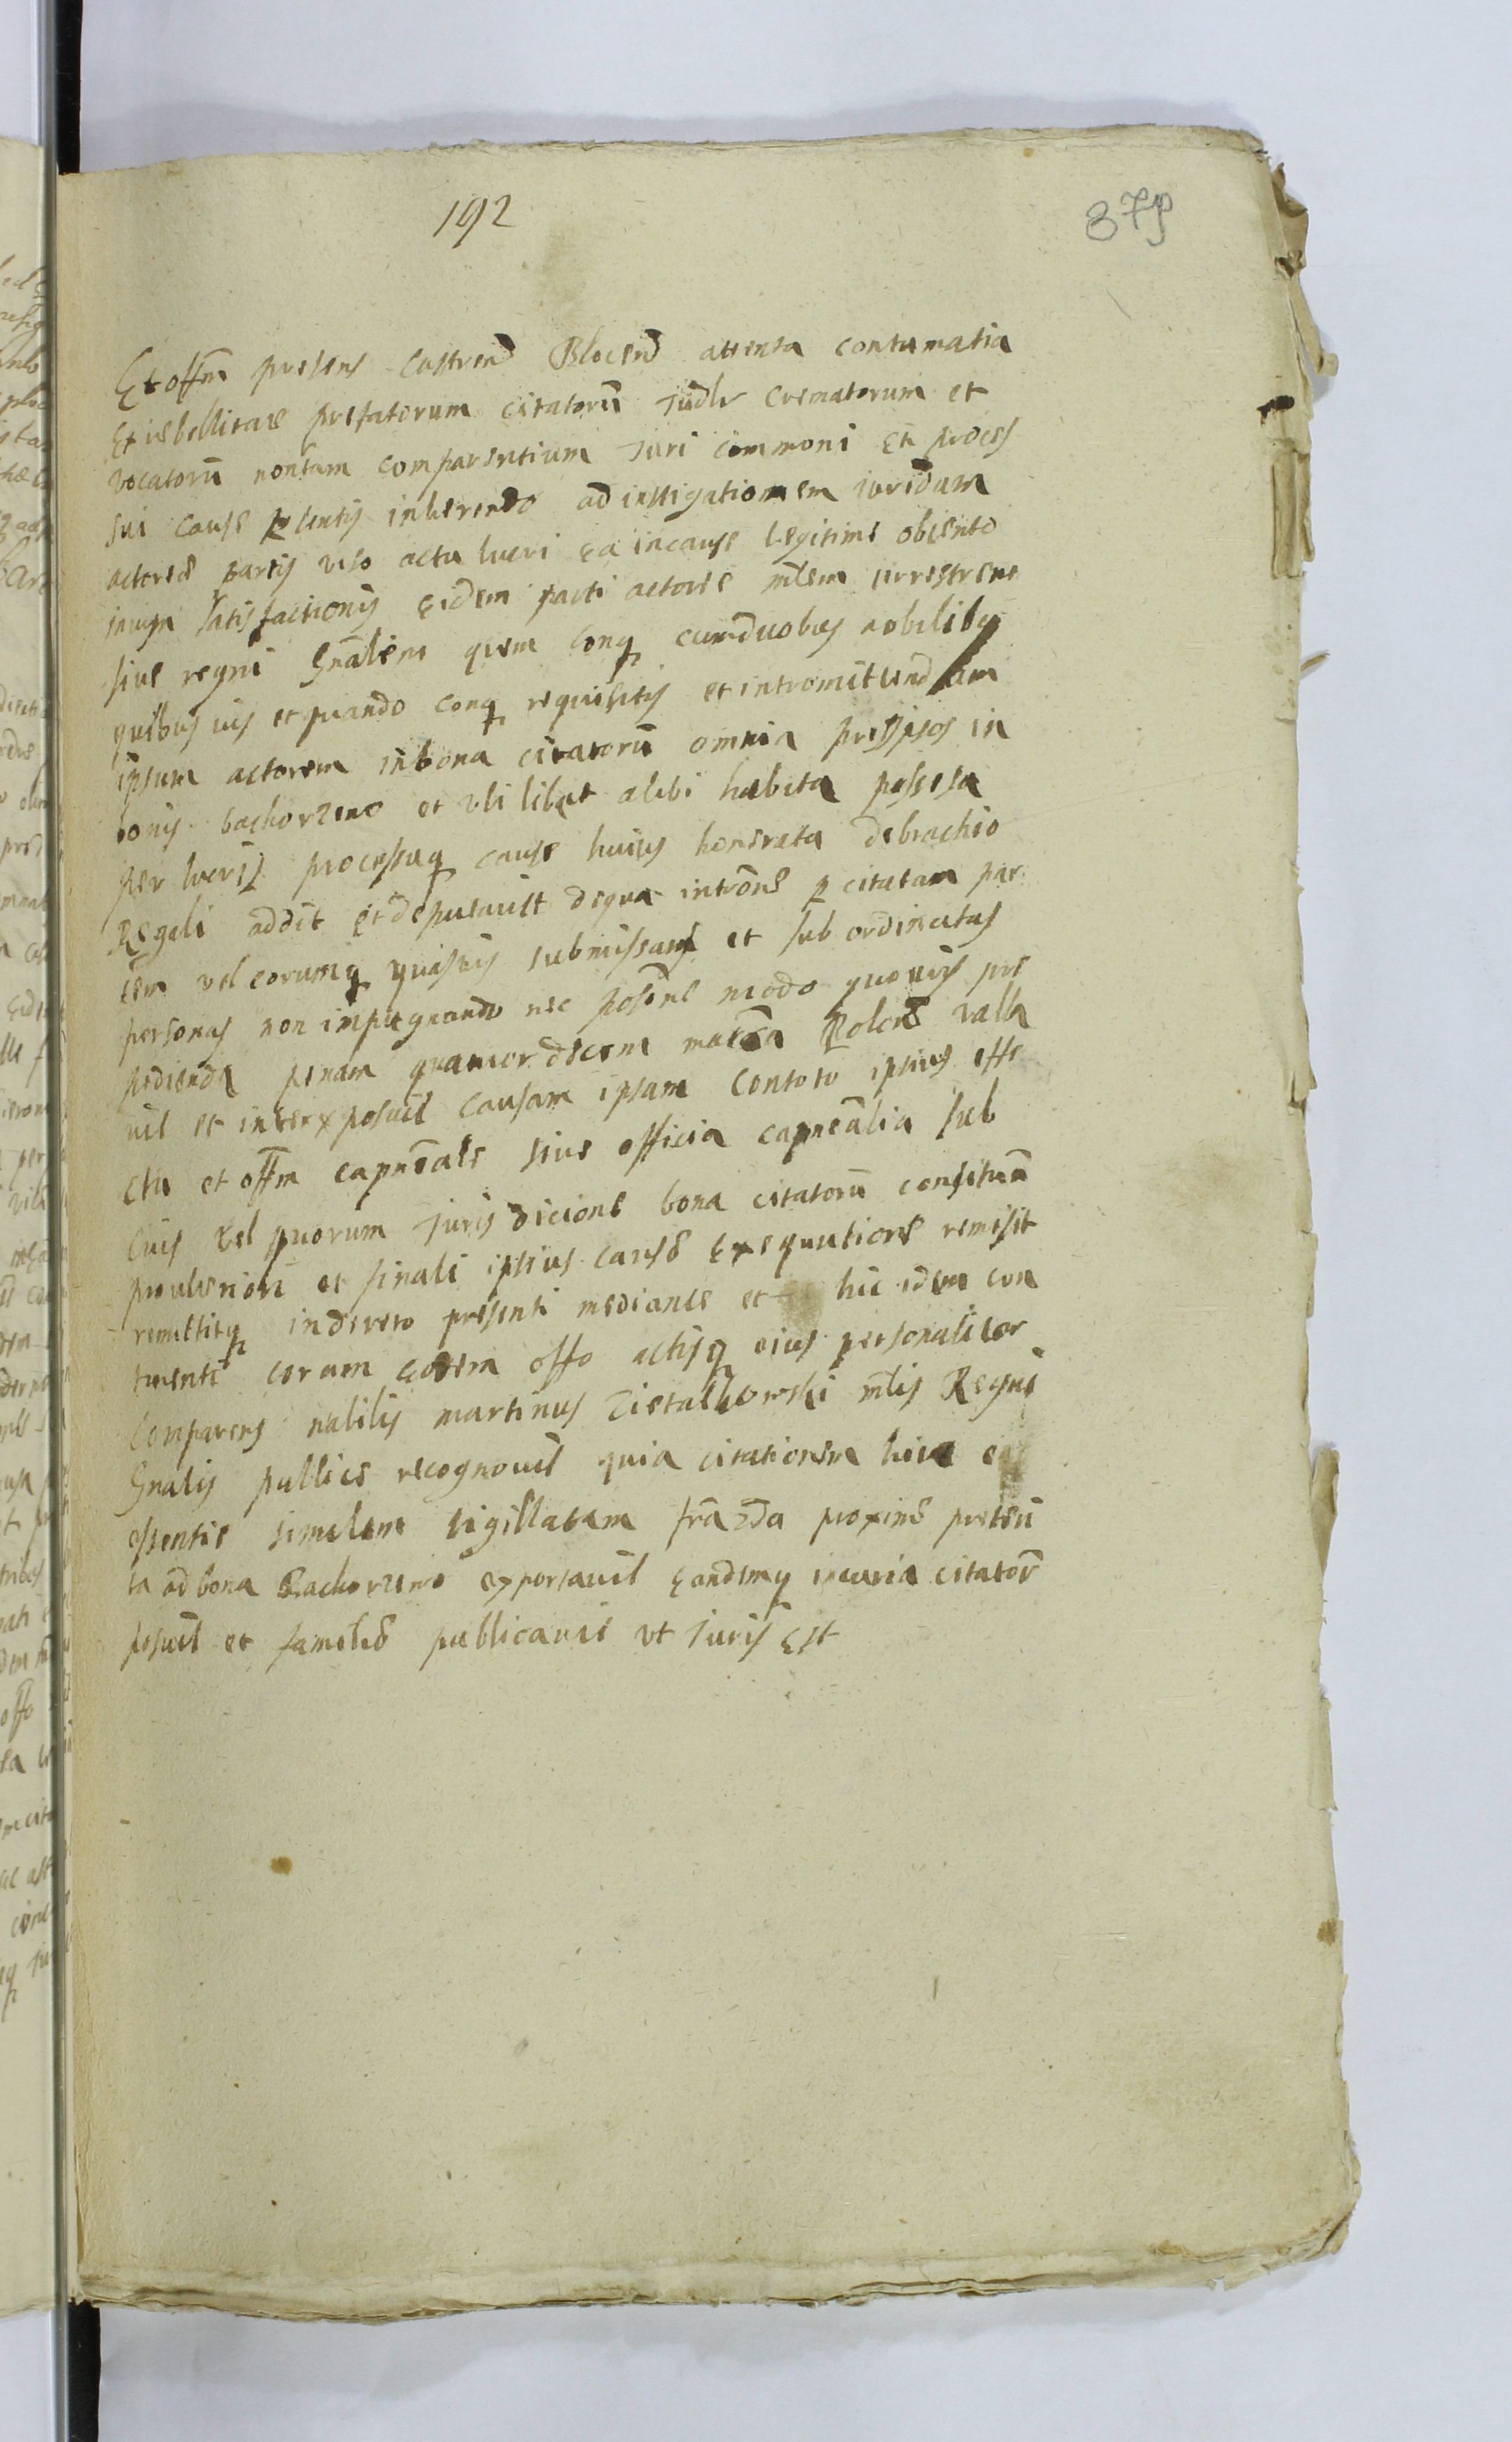 192
87p
Et offm presens Castren Blocen attenta contumatia
Et rebellitate prefatorum citatorū Judlr crematorum et
vocatorū non tam comparentium Juri commoni Et proces
sui cause pr̄sentis inherendo ad instigationem iuridicam
actoree partis viso actu lucri ea in cause legitime obtento
satisfactionis eidem parti actoree mlem terrestrem
sive regni Gnalem quem conq cum duobus nobilibus
quibus vis et quando conq requisitis et intromittendam
ipsum actorem in bona citatorū omnia in
bonis bachorzeno et vbi libet alibi habita possesa
per lucri processuq cause huius honerata de brachio
Regali addit et deputavit de qua introne p citatam par
tem vel eorumq quasvis submissas et sub ordinatas
personas non impugnando nec posēne modo quovis pre
pedienda penam quatuordecem marca Polone valla
vit et interxposuit causam ipsam Con toto ipsius effe
ctu et offm capneale sive officia capnealia sub
cuis vel quorum Juris dicione bona citatorū consistunt
pro ulteriori et finali ipsius cause Exequutione remisit
remittitq in dereto presenti mediante et hic idem con
tinenti coram eodem offo actisq eius personaliter
Comparens nobilis martinus Zietalkowski mlis Regni
Gnalis publice recognovit quia citationem huic
essentie similem sigillatam frā 2da proxime preteri
ta ad bona Bachorzeno exportavit Eandemq in curia citator
posuit et familie publicavit vt Juris Est